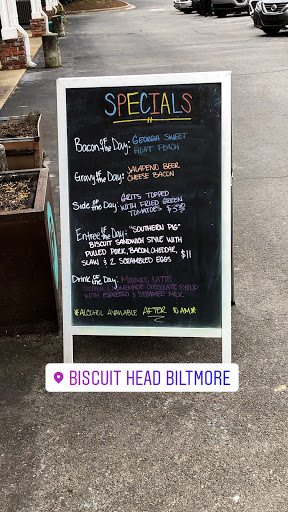 SPECIALS
Bacon of the Day: GEORGIA SWEET
HEAT PEACH
Gravy of the Day: JALAPENO BEER
CHEESE BACON
Side of the Day: GRITS TOPPED
WITH FRIED GREEN
TOMATOES
Entree of the Day: "SOUTHERN PIG"
BISCUIT SANDWICH STYLE WITH
PULLED PORK, BACON, CHEDDAR,
SLAW & 2 SCRAMBLED EGGS $11
Drink of the Day: LATTE
HOMEMADE CHOCOLATE SYRUP
WITH ESPRESSO & STEAMED MILK
*ALCOHOL AVAILABLE AFTER 10 AM*
BISCUIT HEAD BILTMORE